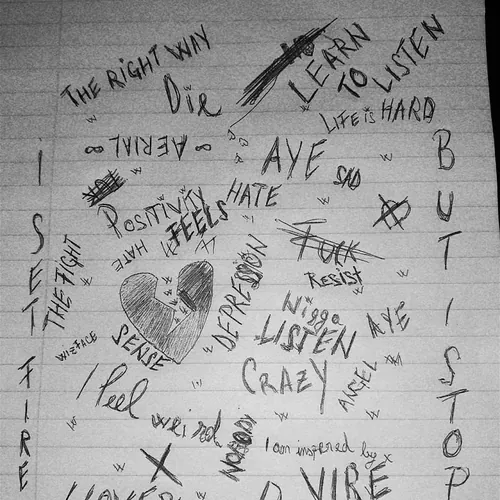 THE RIGHT WAY
Die
LEARN
TO
LISTEN
LIFE is HARD
∞ AERIAL ∞
AYE
SAD
POSITIVITY
HATE
FEELS
HATE
THE FIGHT
DEPRESSION
FUCK
RESIST
Nigga
LISTEN
AYE
WIZFACE
SENSE
CRAZY
ANGEL
I feel weird
NOBODY
I am inspired by x
X
VIBE
I SET FIRE
BUT I STOP